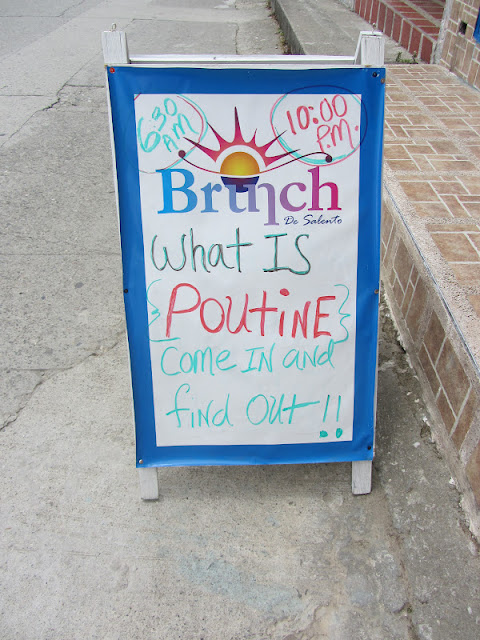 6:30 10:00
AM P.M.
Brunch
De Salento
What Is
{POUTINE}
Come IN and
find OUT!!